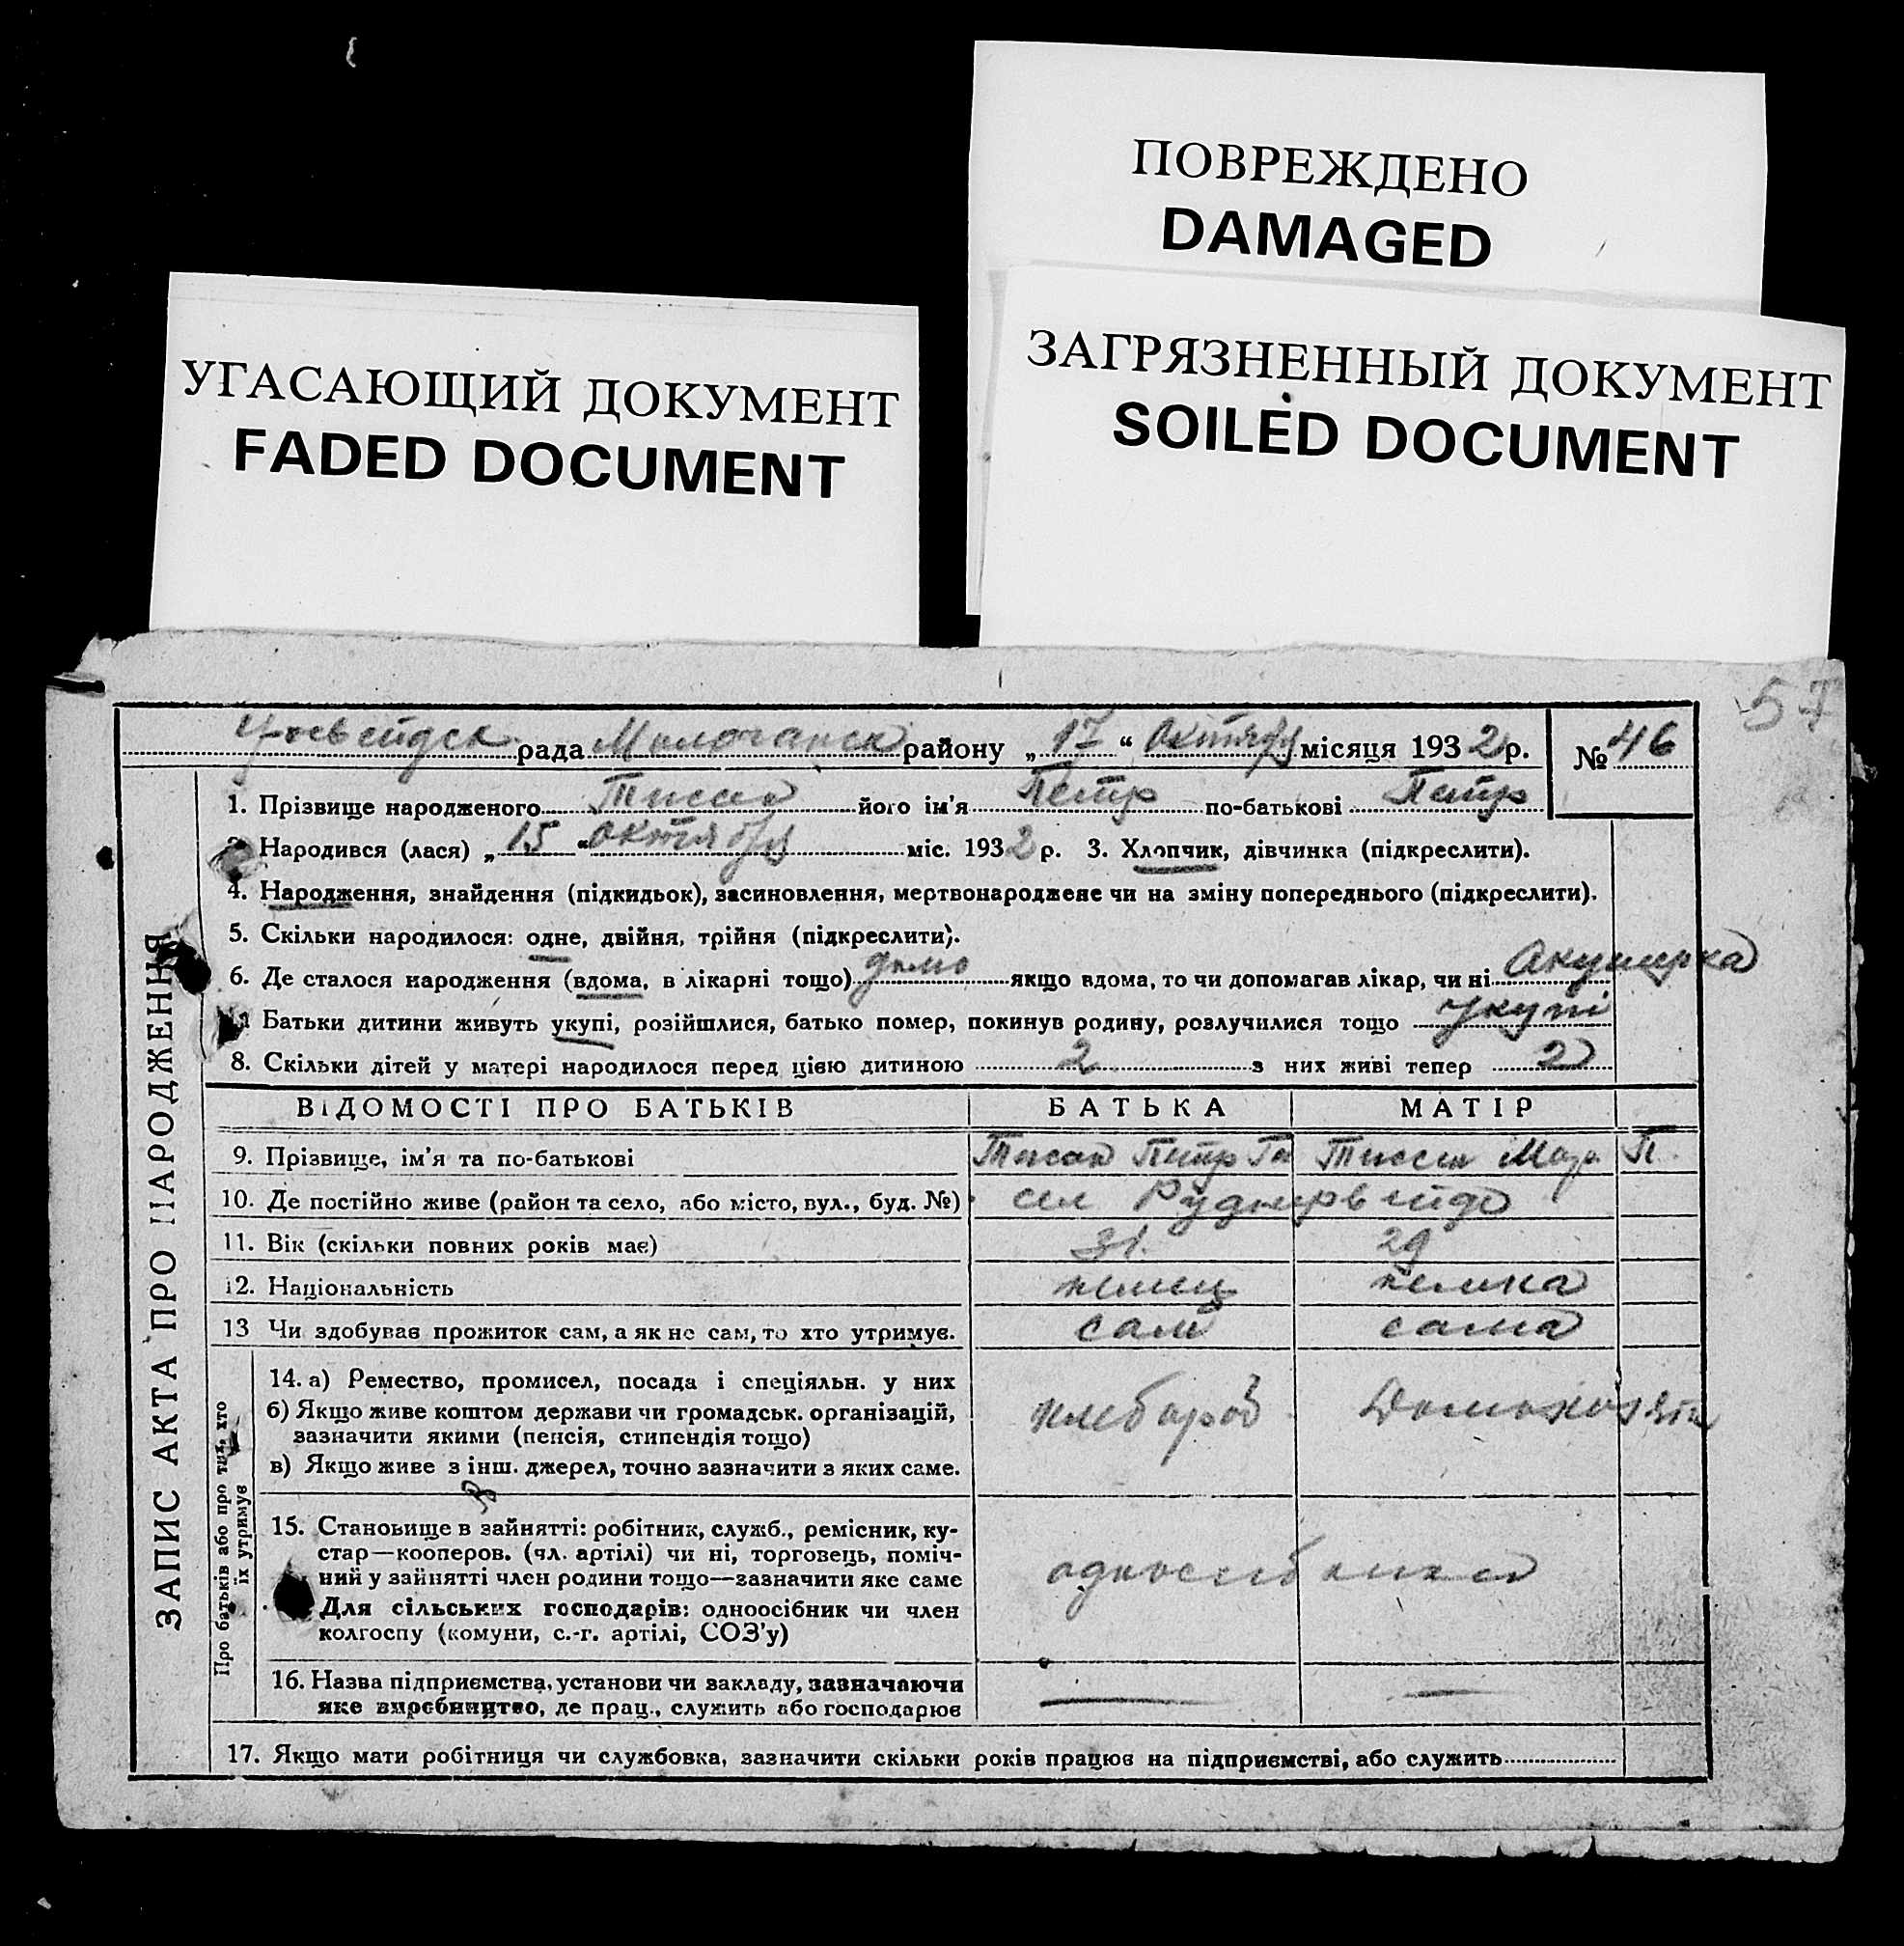 ПОВРЕЖДЕНО
DAMAGED
УГАСАЮЩИЙ ДОКУМЕНТ
FADED DOCUMENT
ЗАГРЯЗНЕННЫЙ ДОКУМЕНТ
SOILED DOCUMENT
57
рада Молочанск району „ 17 “ Октября місяця 1932 р. № 46
ЗАПИС АКТА ПРО НАРОДЖЕННЯ
1. Прізвище народженого його ім'я Петр по-батькові Петр
Народився (лася) „ 15 “ октября міс. 1932 р. 3. Хлопчик, дівчинка (підкреслити).
4. Народження, знайдення (підкидьок), засиновлення, мертвонароджене чи на зміну попереднього (підкреслити).
5. Скільки народилося: одне, двійня, трійня (підкреслити).
6. Де сталося народження (вдома, в лікарні тощо) дома якщо вдома, то чи допомагав лікар, чи ні Акушерка
Батьки дитини живуть укупі, розійшлися, батько помер, покинув родину, розлучилися тощо укупі
8. Скільки дітей у матері народилося перед цією дитиною 2 з них живі тепер 2
ВІДОМОСТІ ПРО БАТЬКІВ БАТЬКА МАТІР
9. Прізвище, ім'я та по-батькові Петр Тиссен П.
10. Де постійно живе (район та село, або місто, вул., буд. №) сел
11. Вік (скільки повних років має) 31. 29
12. Національність немец немка
13 Чи здобував прожиток сам, а як не сам, то хто утримує. сам сама
Про батьків або про тих, хто їх утримує
14. а) Ремество, промисел, посада і спеціяльн. у них
б) Якщо живе коштом держави чи громадськ. організацій,
зазначити якими (пенсія, стипендія тощо)
хлебороб Домохозяйка
в) Якщо живе з інш. джерел, точно зазначити з яких саме.
15. Становище в зайнятті: робітник, служб., ремісник, ку-
стар—кооперов. (чл. артілі) чи ні, торговець, поміч-
ний у зайнятті член родини тощо—зазначити яке саме
Для сільських господарів: одноосібник чи член
колгоспу (комуни, с.-г. артілі, СОЗ'у)
16. Назва підприємства, установи чи закладу, зазначаючи
яке виробництво, де прац., служить або господарює
17. Якщо мати робітниця чи службовка, зазначити скільки років працює на підприємстві, або служить